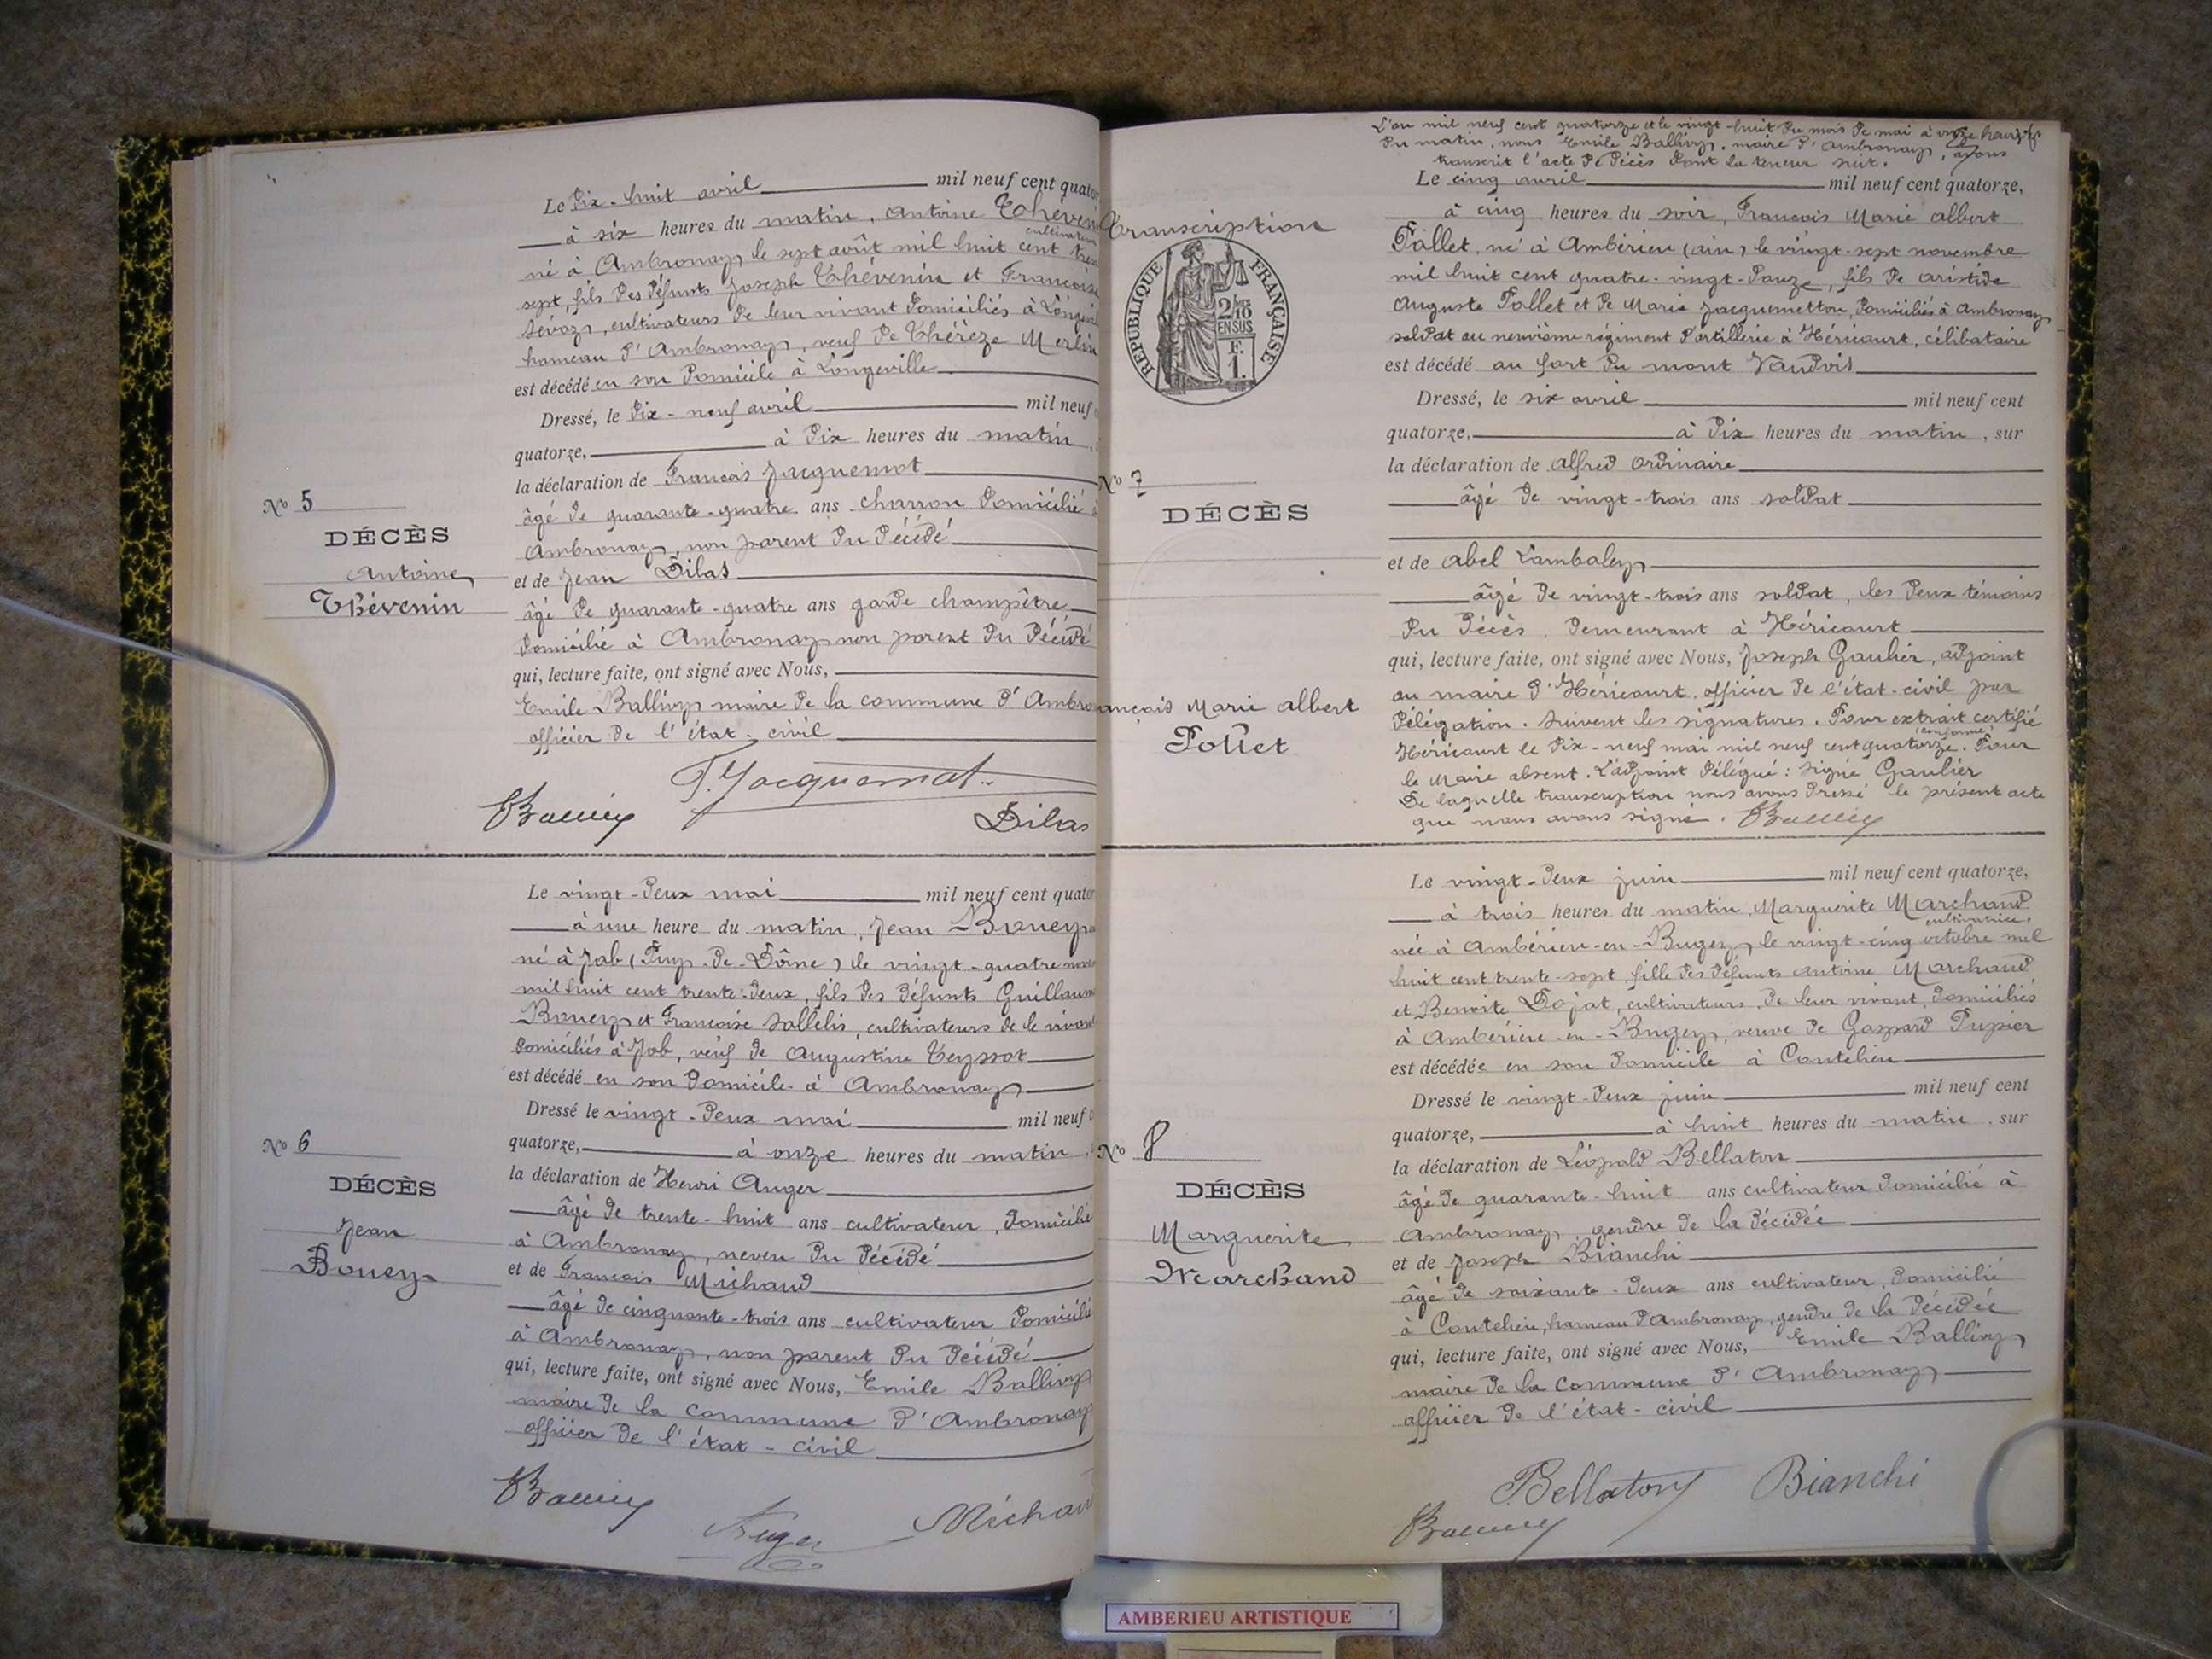 Le dix-huit avril mil neuf cent quator
à six heures du matin, Antoine Thévenin
cultivateur
né à Ambronay le sept août mil huit cent tren
sept, fils des défunts Joseph Thévenin et Françoise
cultivateurs de leur vivant domiciliés à Longevil
hameau d'Ambronay, veuf de Thérèze Merlin
est décédé en son domicile à Longeville
Dressé, le dix-neuf avril mil neuf c
quatorze, à dix heures du matin,
la déclaration de François Jacquemot
âgé de quarante-quatre ans charron domicilié à
Ambronay, non parent du décédé
et de Jean Dilas
âgé de quarante-quatre ans garde champêtre
domicilié à Ambronay non parent du décédé
qui, lecture faite, ont signé avec Nous,
Emile Ballivy maire de la commune d'Ambron
officier de l'état-civil
F. Jacquemot
EBallivy
Dilas
No 5
DÉCÈS
Antoine
Thévenin
Le vingt-deux mai mil neuf cent quator
à une heure du matin, Jean Bouey
né à Job (Puy-de-Dôme) le vingt-quatre nov
mil huit cent trente-deux, fils des défunts Guillaum
Bouey et Françoise Sallelis, cultivateurs de le vivant
domiciliés à Job, veuf de Augustine Teyssot
est décédé en son domicile à Ambronay
Dressé le vingt-deux mai mil neuf c
quatorze, à onze heures du matin,
la déclaration de Henri Auger
âgé de trente-huit ans cultivateur, domicilié
à Ambronay, neveu du décédé
et de François Michaud
âgé de cinquante-trois ans cultivateur domicilié
à Ambronay, non parent du décédé
qui, lecture faite, ont signé avec Nous, Emile Ballivy
maire de la commune d'Ambronay
officier de l'état-civil
EBallivy
Auger
Michau
No 6
DÉCÈS
Jean
Bouey
L'an mil neuf cent quatorze et le vingt-huit du mois de mai à onze heures
du matin, nous Emile Ballivy, maire d'Ambronay, avons
transcrit l'acte de décès dont la teneur suit.
Transcription
RÉPUBLIQUE FRANÇAISE
2/10
EN SUS
F.
1.
Le cinq avril mil neuf cent quatorze,
à cinq heures du soir, François Marie Albert
Pollet, né à Ambérieu (Ain) le vingt-sept novembre
mil huit cent quatre-vingt-douze, fils de Aristide
Auguste Pollet et de Marie Jacquemetton, domiciliés à Ambronay
soldat au neuvième régiment d'artillerie à Héricourt, célibataire
est décédé au fort du mont Vaudois
Dressé, le six avril mil neuf cent
quatorze, à dix heures du matin, sur
la déclaration de Alfred Ordinaire
âgé de vingt-trois ans soldat
et de Abel Lambaley
âgé de vingt-trois ans soldat, les deux témoins
du décès, demeurant à Héricourt
qui, lecture faite, ont signé avec Nous, Joseph Gaulier, adjoint
au maire d'Héricourt, officier de l'état-civil par
délégation. Suivent les signatures. Pour extrait certifié
conforme
Héricourt le dix-neuf mai mil neuf cent quatorze. Pour
le Maire absent. L'adjoint délégué: signé Gaulier
De laquelle transcription nous avons dressé le présent acte
que nous avons signé. EBallivy
No 7
DÉCÈS
ançois Marie Albert
Pollet
Le vingt-deux juin mil neuf cent quatorze,
à trois heures du matin, Marguerite Marchand
cultivatrice,
née à Ambérieu-en-Bugey, le vingt-cinq octobre mil
huit cent trente-sept, fille des défunts Antoine Marchand
et Benoite Dojat, cultivateurs, de leur vivant, domiciliés
à Ambérieu-en-Bugey, veuve de Gaspard Pupier
est décédée en son domicile à Coutelieu
Dressé le vingt-deux juin mil neuf cent
quatorze, à huit heures du matin, sur
la déclaration de Léopold Bellaton
âgé de quarante-huit ans cultivateur domicilié à
Ambronay, gendre de la décédée
et de Joseph Bianchi
âgé de soixante-deux ans cultivateur, domicilié
à Coutelieu, hameau d'Ambronay, gendre de la décédée
qui, lecture faite, ont signé avec Nous, Emile Ballivy
maire de la commune d'Ambronay
officier de l'état-civil
Bellaton Bianchi
EBallivy
No 8
DÉCÈS
Marguerite
Marchand
AMBERIEU ARTISTIQUE